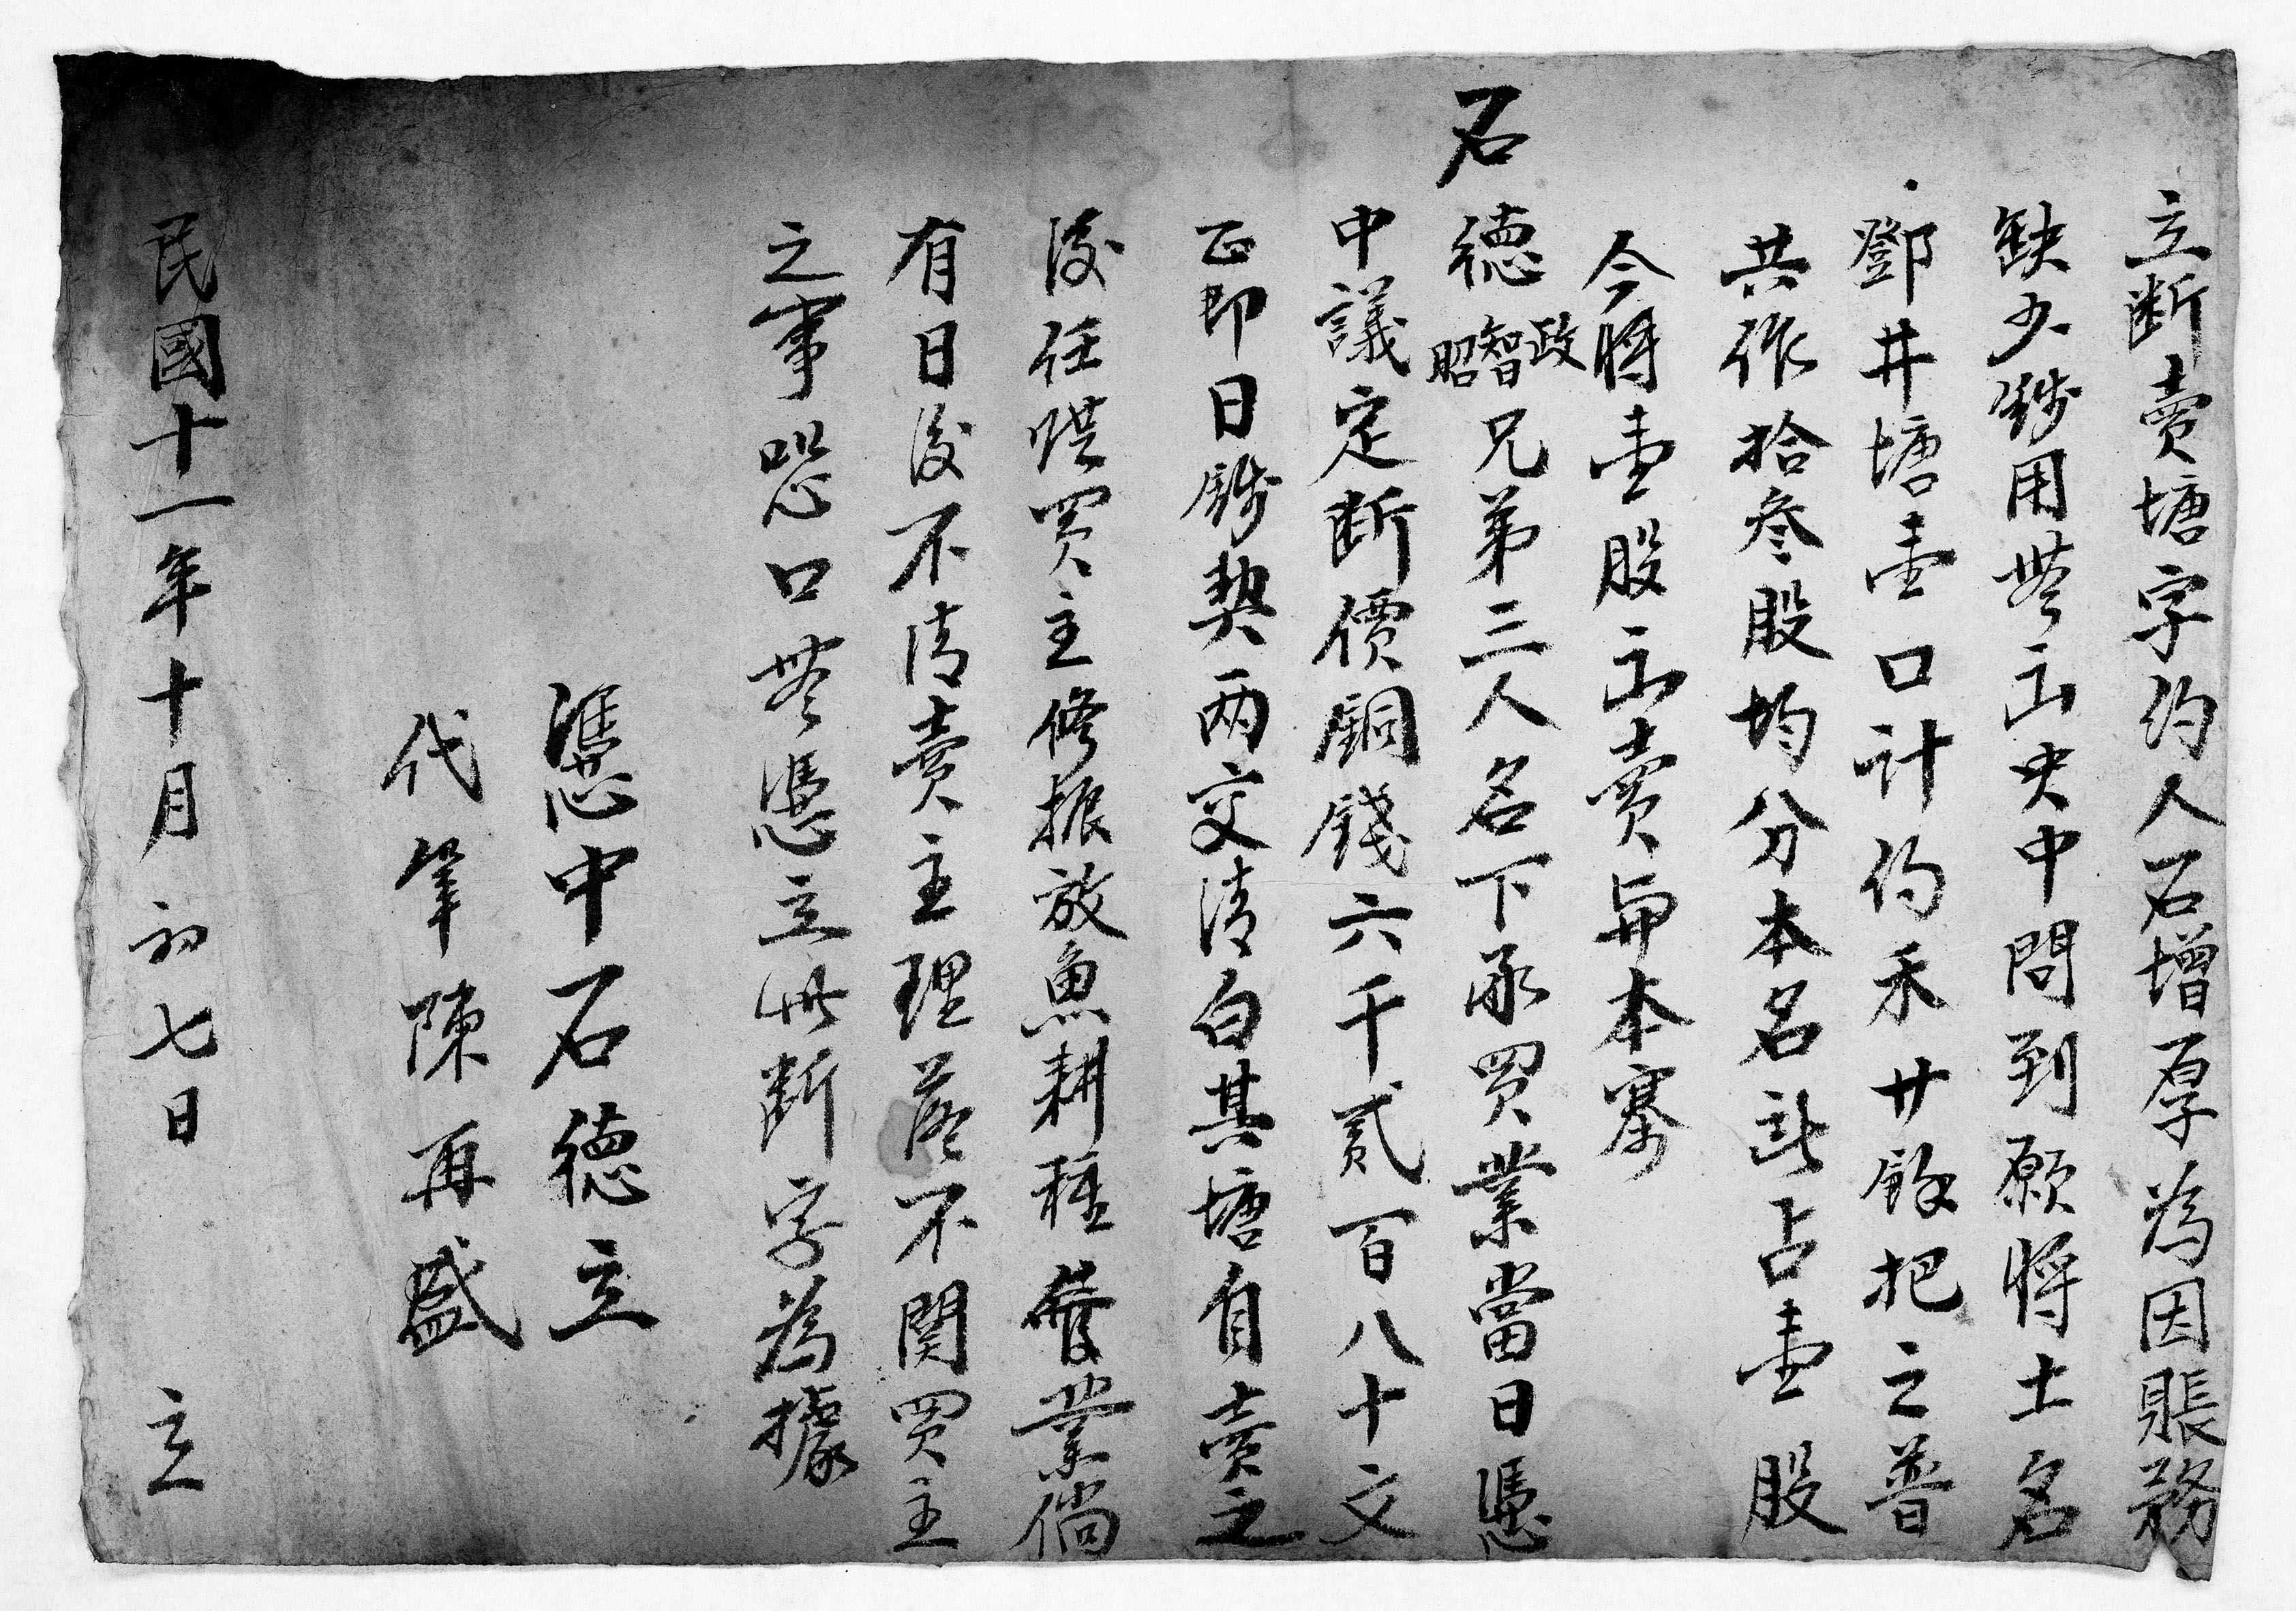 立断賣塘字約人石增厚為因賬務
缺少錢用無出央中問到願將土名
鄧井塘壹口計約禾廿餘把之普
共作拾叁股均分本名註占壹股
今將壹股出賣與本寨
石德政智昭兄弟三人名下承買業當日憑
中議定断價銅錢六千貳百八十文
正即日錢契两交清白其塘自賣之
後任憑買主修振放魚耕種管業倘
有日後不清賣主理落不関買主
之事恐口無憑立此断字為據
憑中石德立
代筆陳再盛
民國十一年十月初七日 立